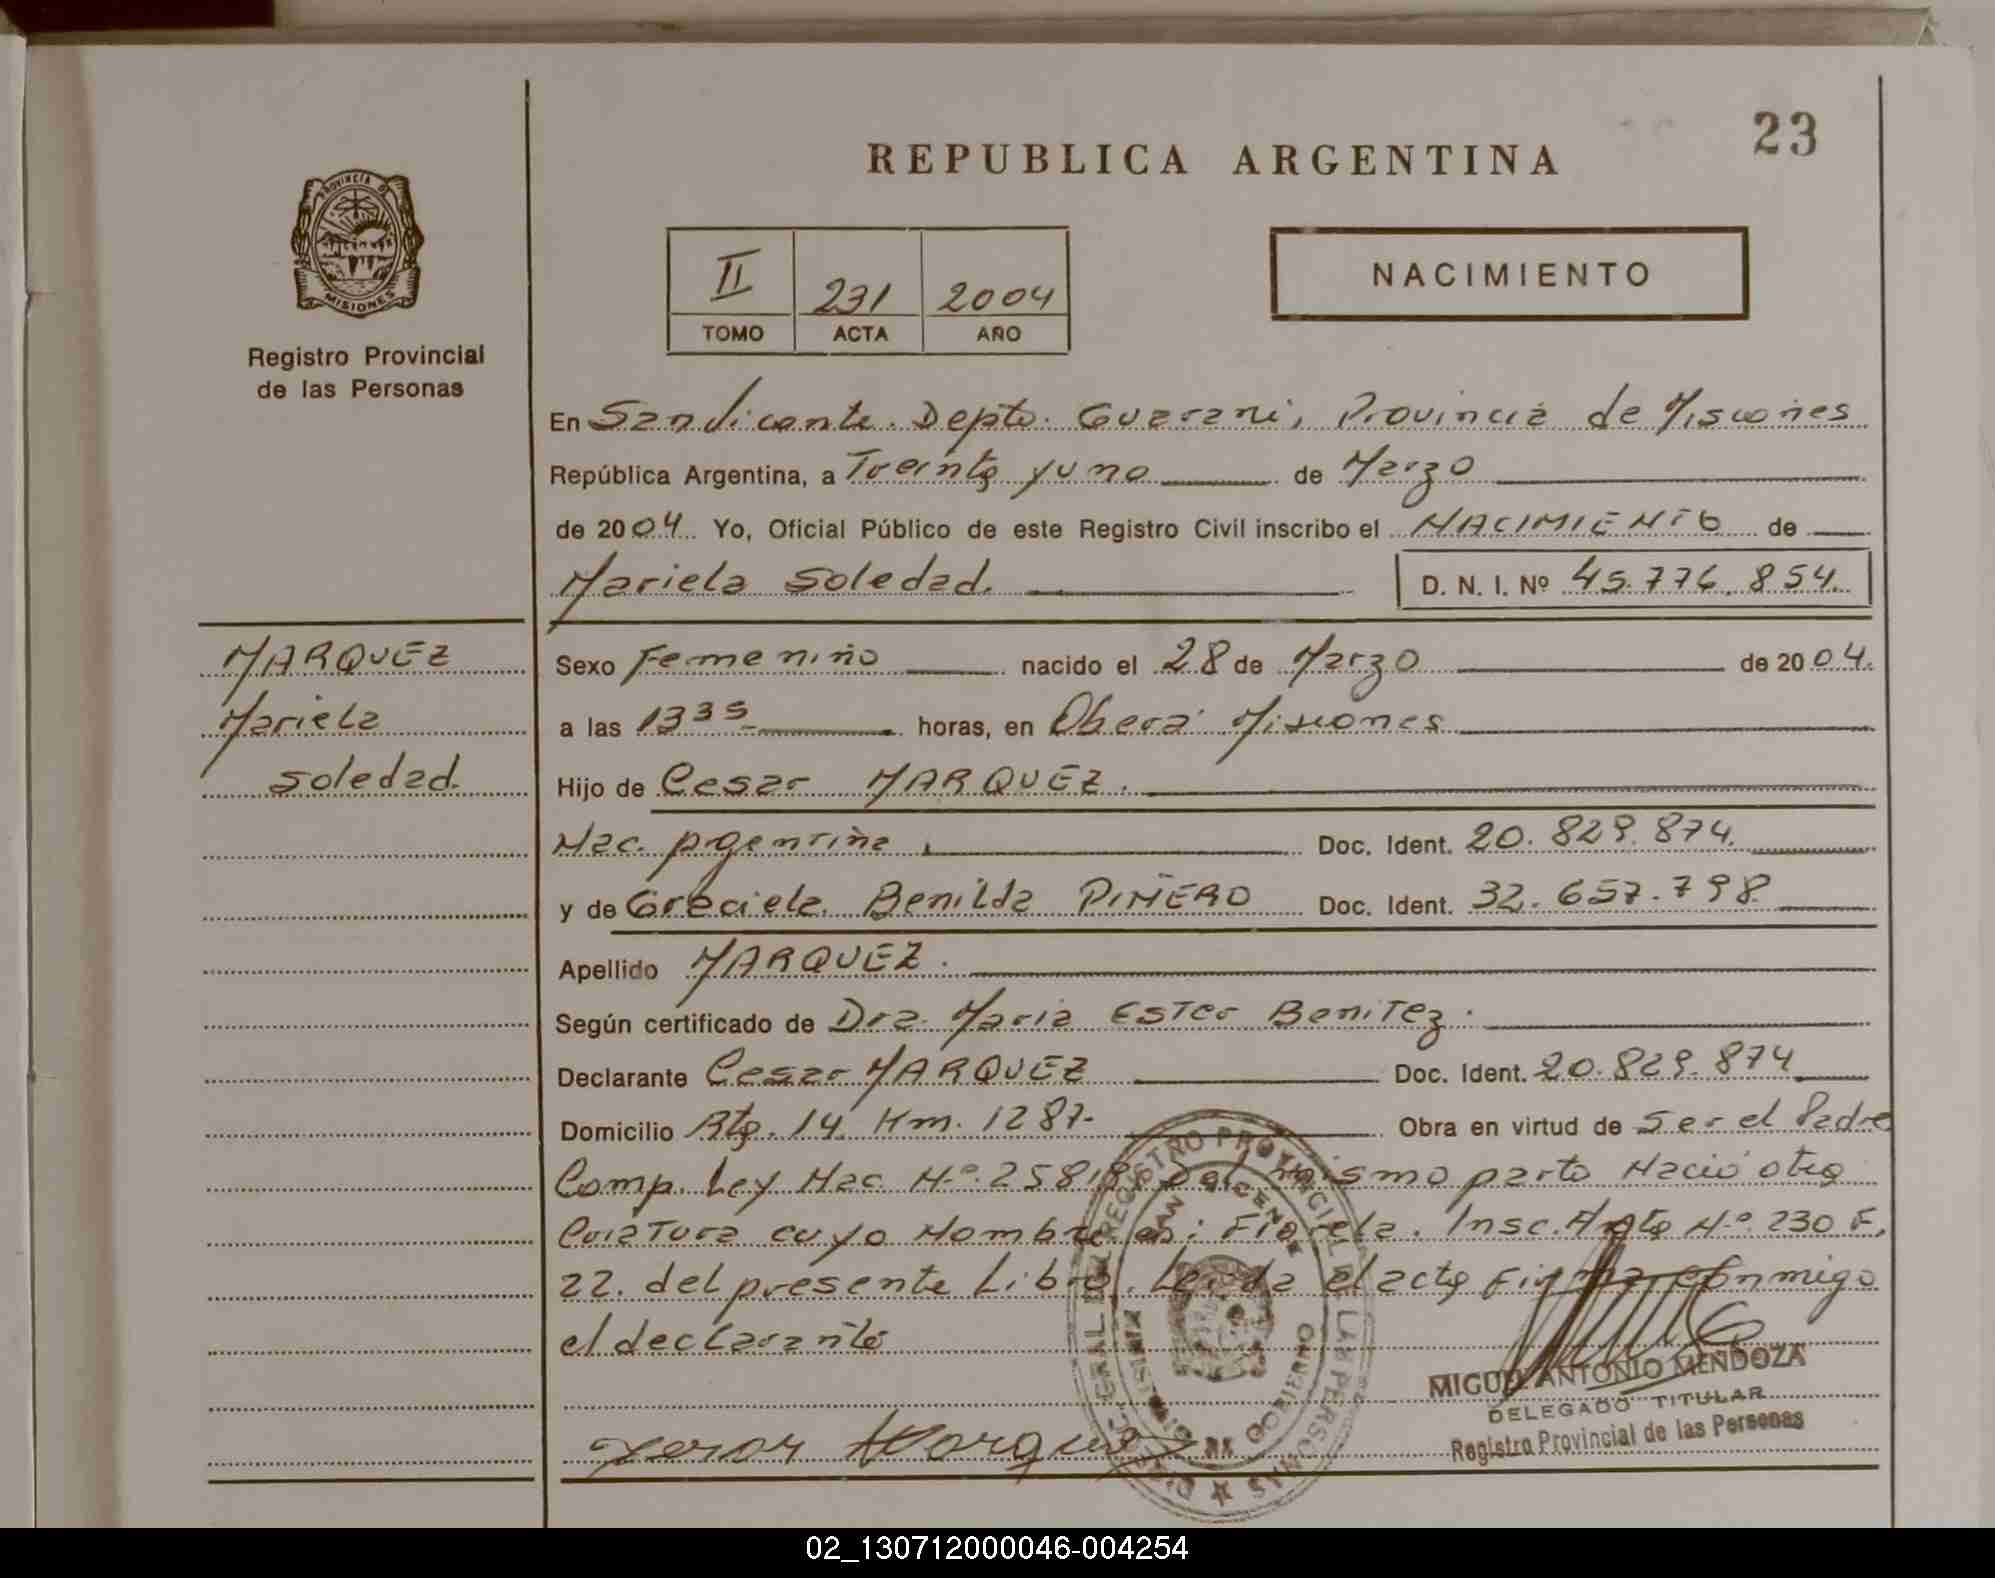 23
REPUBLICA ARGENTINA
PROVINCIA DE
MISIONES
Registro Provincial
de las Personas
II 231 2004
TOMO ACTA AÑO
NACIMIENTO
En San Vicente. Depto. Guarani, Provincia de Misiones
República Argentina, a Treinta y uno de Marzo
de 2004. Yo, Oficial Público de este Registro Civil inscribo el NACIMIENTO de
Mariela Soledad. D. N. I. Nº 45.776.854.
MARQUEZ
Mariela
Soledad.
Sexo Femenino nacido el 28 de Marzo de 2004.
a las 13 35 horas, en Oberá Misiones
Hijo de Cesar MARQUEZ.
Nac. Argentina. Doc. Ident. 20.829.874.
y de Graciela Benilda PIÑERO Doc. Ident. 32.657.798
Apellido MARQUEZ.
Según certificado de Dra. Maria Ester Benitez.
Declarante Cesar MARQUEZ Doc. Ident. 20.829.874
Domicilio Rta. 14 Km. 1287- Obra en virtud de Ser el Padre
Comp. Ley Nac. Nº 25818. Del mismo parto Nació otra
Criatura cuyo Nombre es: Fiorela. Insc. Acta Nº 230 F.
22. del presente Libro. Leida el acta Firma Conmigo
el declarante
MIGUEL ANTONIO MENDOZA
DELEGADO TITULAR
Registro Provincial de las Personas
Marquez
REGISTRO PROVINCIAL DE LAS PERSONAS
SAN VICENTE
MINISTERIO DE GOBIERNO
02_130712000046-004254